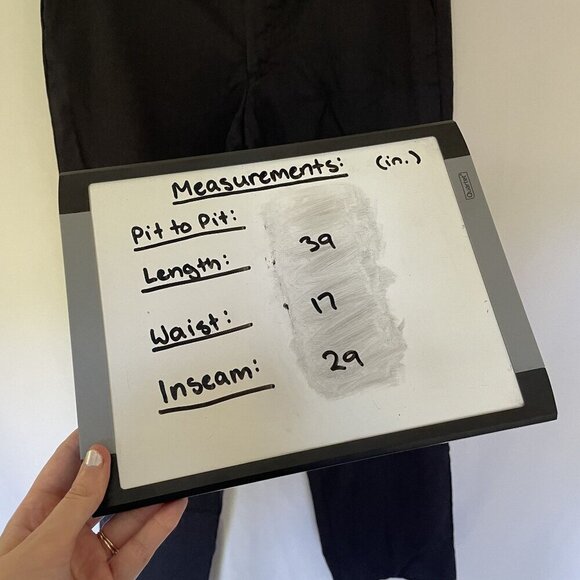 Measurements: (in.)
Pit to Pit:
Length: 39
Waist: 17
Inseam: 29
Quartet